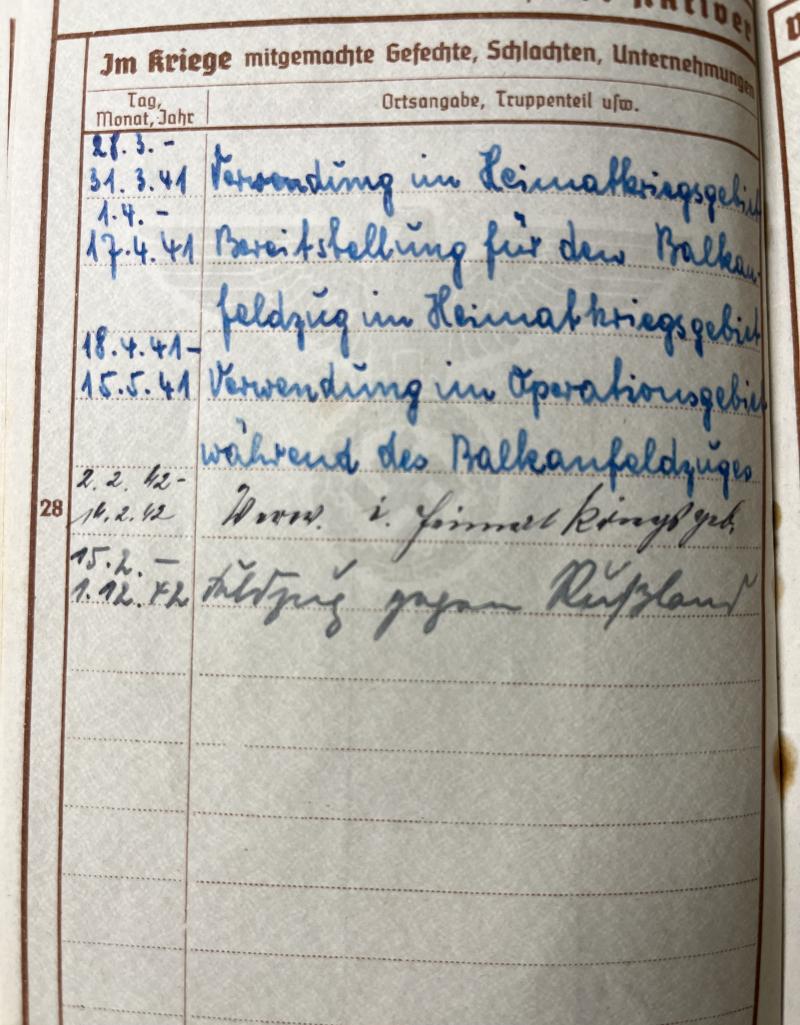 Im Kriege mitgemachte Gefechte, Schlachten, Unternehmungen
Tag,
Monat, Jahr
Ortsangabe, Truppenteil usw.
28.3.-
31.3.41 Verwendung im Heimatkriegsgebiet
1.4.-
17.4.41 Bereitstellung für den Balkan-
feldzug im Heimatkriegsgebiet
18.4.41-
15.5.41 Verwendung im Operationsgebiet
während des Balkanfeldzuges
2.2.42-
14.2.42 Verw. i. Heimatkriegsgeb.
28
15.2.-
1.12.42 Feldzug gegen Rußland